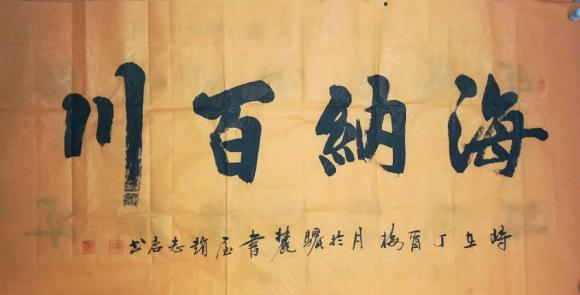 海納百川
時在丁酉梅月於驪麓書屋趙志君書